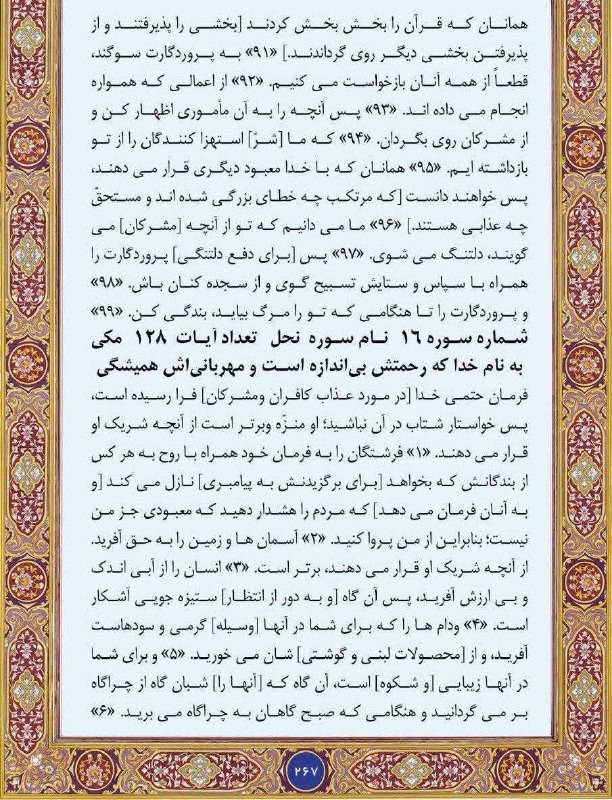 همانان که قرآن را بخش بخش کردند [بخشی را پذیرفتند و از
پذیرفتن بخشی دیگر روی گرداندند.] «۹۱» به پروردگارت سوگند،
قطعاً از همه آنان بازخواست می کنیم. «۹۲» از اعمالی که همواره
انجام می داده اند. «۹۳» پس آنچه را به آن مأموری اظهار کن و
از مشرکان روی بگردان. «۹۴» که ما [شرّ] استهزا کنندگان را از تو
بازداشته ایم. «۹۵» همانان که با خدا معبود دیگری قرار می دهند،
پس خواهند دانست [که مرتکب چه خطای بزرگی شده اند و مستحقّ
چه عذابی هستند.] «۹۶» ما می دانیم که تو از آنچه [مشرکان] می
گویند، دلتنگ می شوی. «۹۷» پس [برای دفع دلتنگی] پروردگارت را
همراه با سپاس و ستایش تسبیح گوی و از سجده کنان باش. «۹۸»
و پروردگارت را تا هنگامی که تو را مرگ بیاید، بندگی کن. «۹۹»
شماره سوره ۱۶ نام سوره نحل تعداد آیات ۱۲۸ مکی
به نام خدا که رحمتش بی‌اندازه است و مهربانی‌اش همیشگی
فرمان حتمی خدا [در مورد عذاب کافران ومشرکان] فرا رسیده است،
پس خواستار شتاب در آن نباشید؛ او منزّه وبرتر است از آنچه شریک او
قرار می دهند. «۱» فرشتگان را به فرمان خود همراه با روح به هر کس
از بندگانش که بخواهد [برای برگزیدنش به پیامبری] نازل می کند [و
به آنان فرمان می دهد] که مردم را هشدار دهید که معبودی جز من
نیست؛ بنابراین از من پروا کنید. «۲» آسمان ها و زمین را به حق آفرید.
از آنچه شریک او قرار می دهند، برتر است. «۳» انسان را از آبی اندک
و بی ارزش آفرید، پس آن گاه [و به دور از انتظار] ستیزه جویی آشکار
است. «۴» ودام ها را که برای شما در آنها [وسیله] گرمی و سودهاست
آفرید، و از [محصولات لبنی و گوشتی] شان می خورید. «۵» و برای شما
در آنها زیبایی [و شکوه] است، آن گاه که [آنها را] شبان گاه از چراگاه
بر می گردانید و هنگامی که صبح گاهان به چراگاه می برید. «۶»
۲۶۷